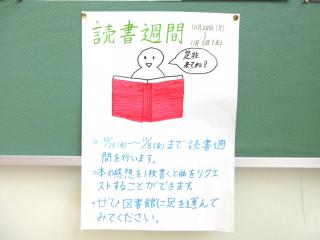 読書週間
10月28日(月)
11月8日(金)
是非
来てね!
○10/28(月)〜11/8(金)まで読書週
間を行います。
○本の感想を1枚書くと曲をリクエ
ストすることができます。
○ぜひ図書館に足を運んで
みてください。